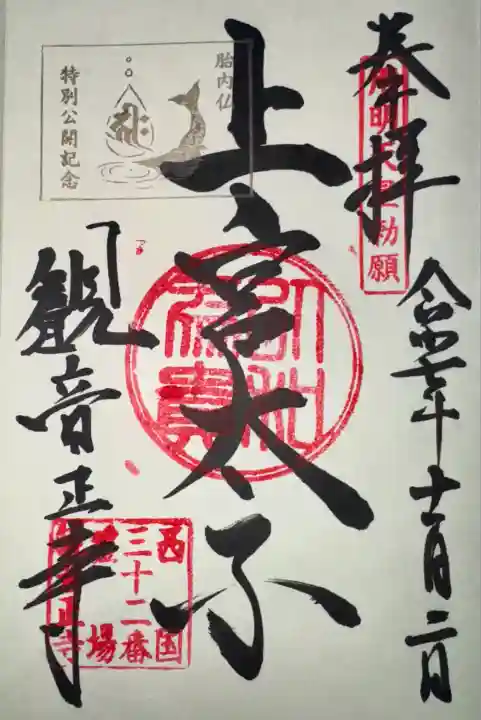 奉拝
用明天皇勅願
令和七年十一月二日
上宮太子
胎内仏
特別公開記念
観音正寺
西国
三十二番
霊場
観音正寺